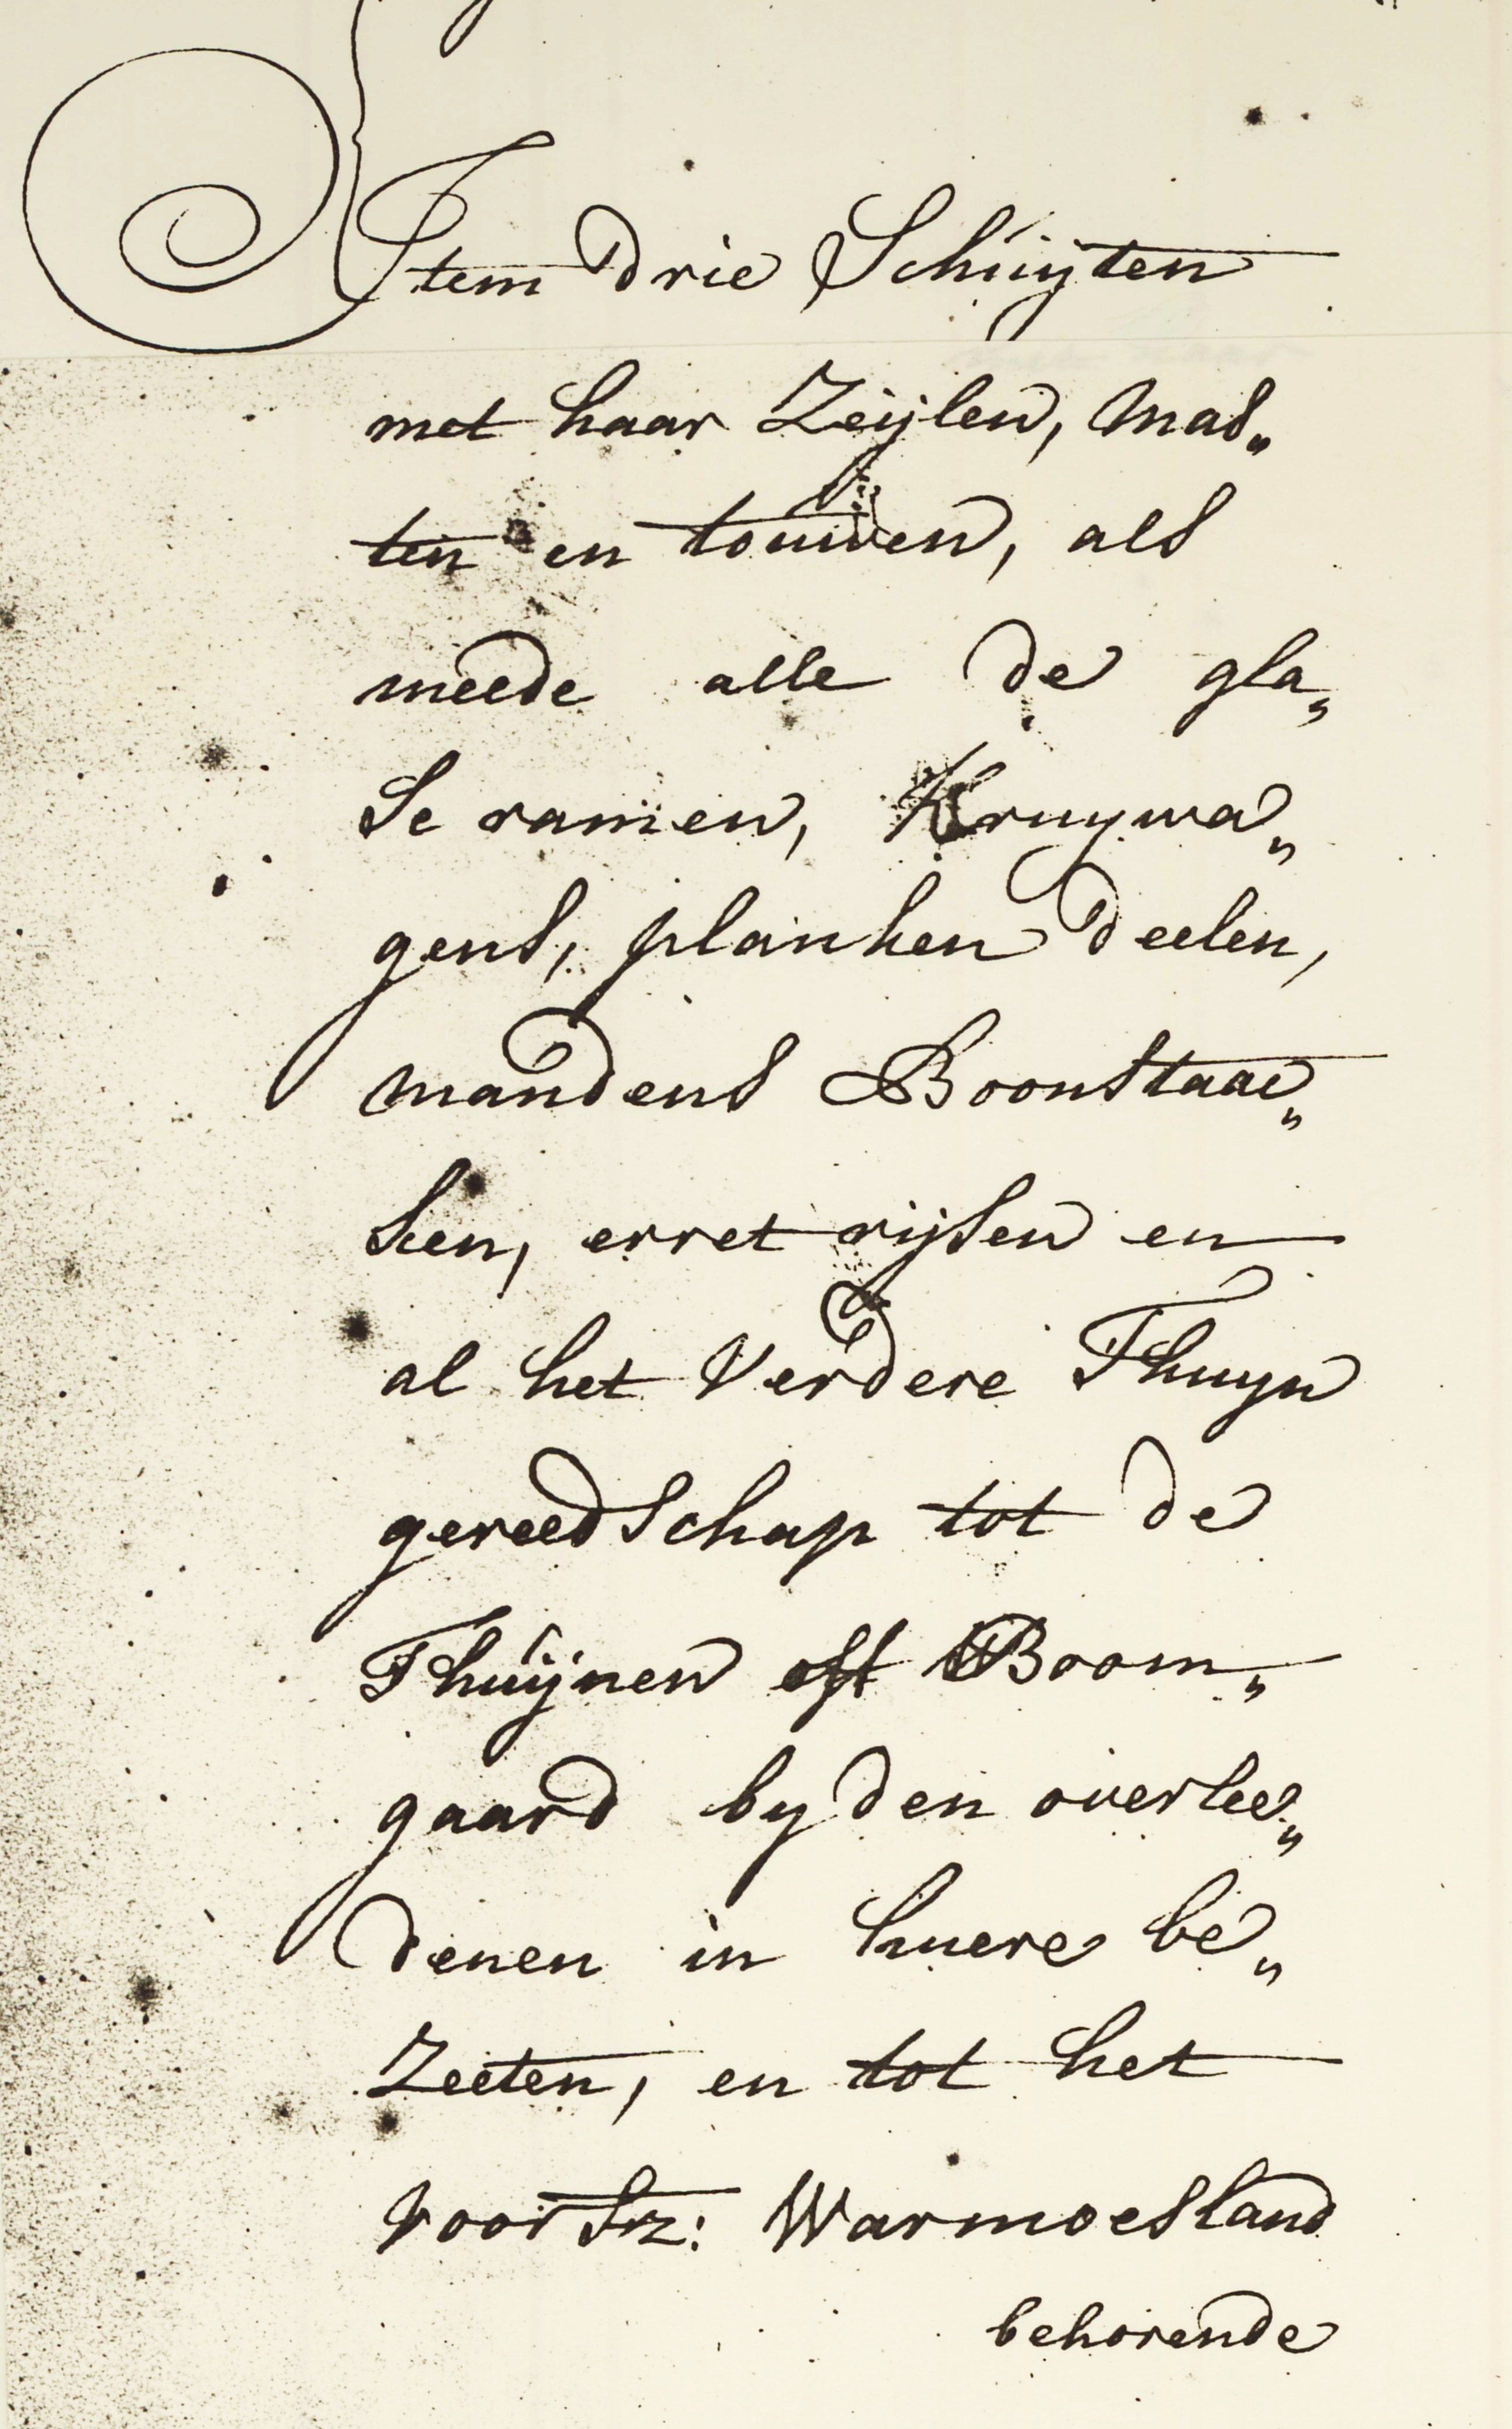 Item drie Schuijten
met haar Zeijlen, mas„
ten en touwen, als
meede alle de gla„
se ramen, Kruywa„
gens, planken deelen,
mandens Boonstaa„
ken, erret rijsen en
al het Verdere Thuyn
gereedschap tot de
Thuijnen oft Boom„
gaard by den overlee„
denen in huere be„
Zeeten, en tot het
voorsz: Warmoesland
behorende